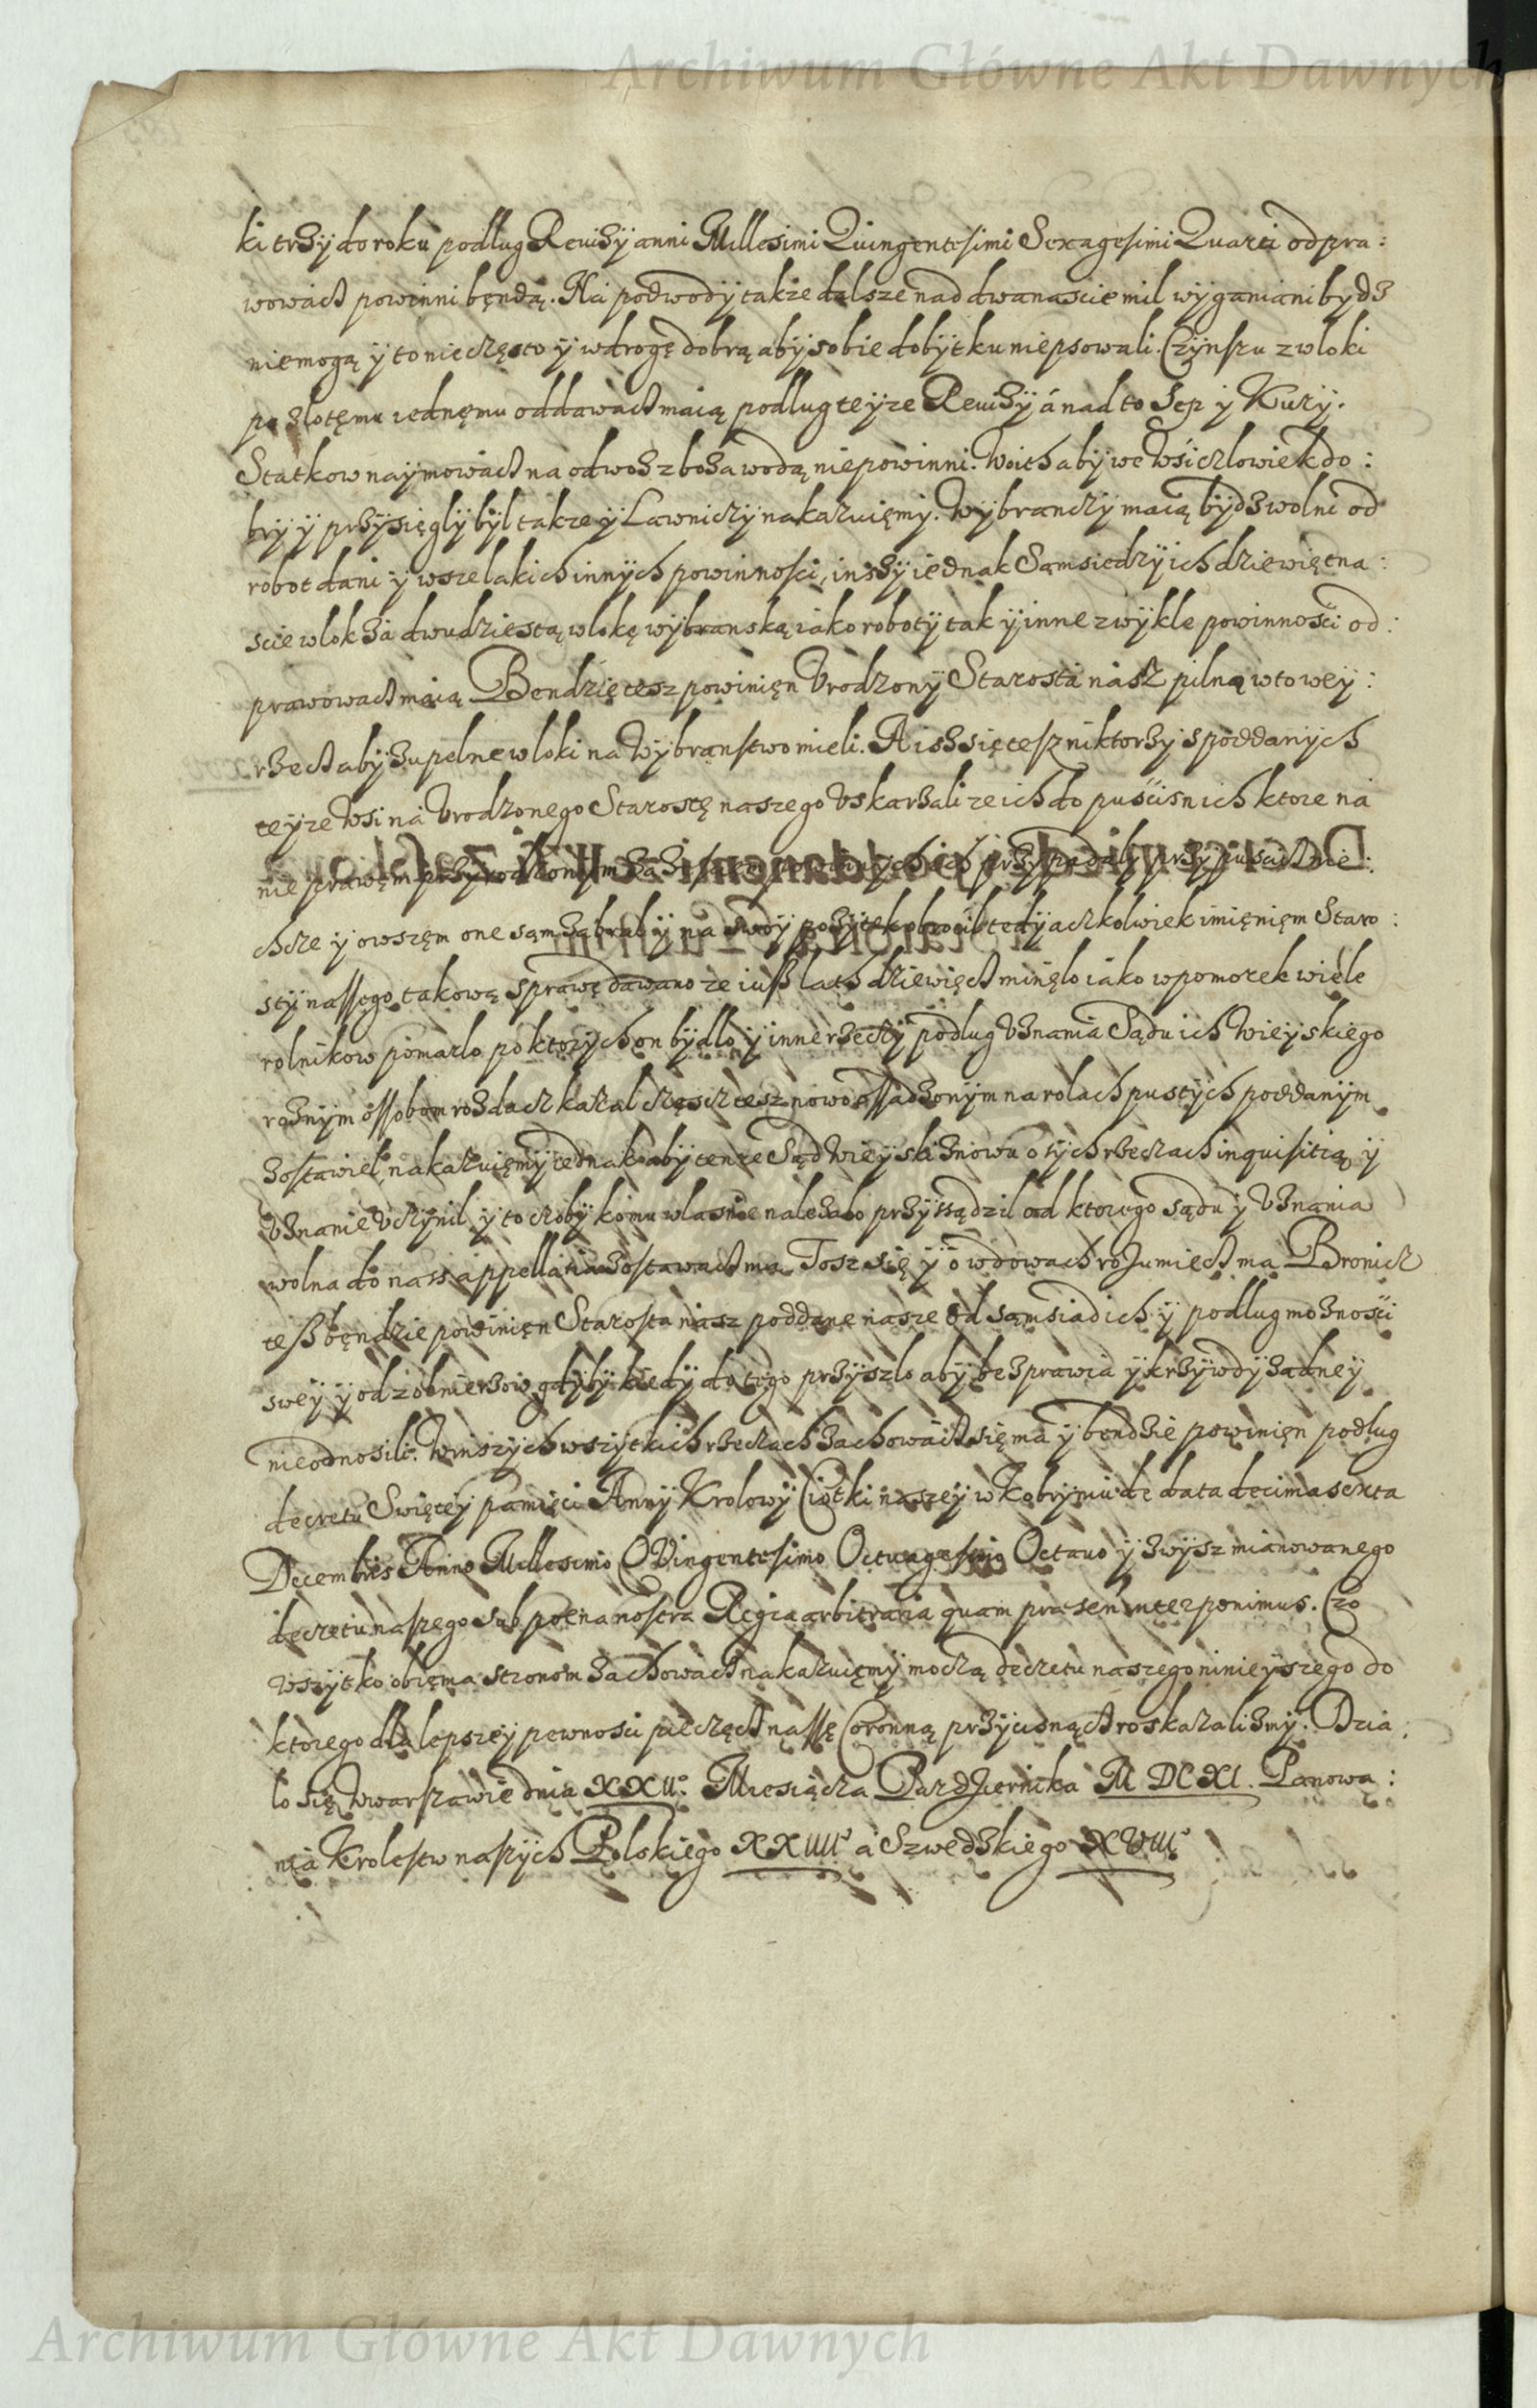 Archiwum Główne Akt Dawnych
ki trzy do roku podług Rewizÿ anni Millesimi Quingentesimi Sexagesimi Quarti odpra:
wowacz powinni będą. Na podwodÿ także dalsze nad dwanascie mil wÿganiani bÿdz
nie mogą ÿ to nie często ÿ w drogę dobrą abÿ sobie dobÿtku nie psowali. Czÿnszu z wloki
po zlotęmu iednęmu oddawacz maią podług teÿze Rewizÿ á nad to Sep ÿ Kurÿ.
Statkow naÿmowacz na odwoz zboza wodą nie powinni. Woith abÿ we Wsi człowiek do:
brÿ ÿ przÿsięglÿ bÿl takze ÿ Lawniczÿ nakazuięmÿ. Wÿbranczÿ maią bÿdz wolni od
robot dani ÿ wszelakich innÿch powinnosci, inszÿ iednak Sąmsiedzi ich dziewiętna:
scie wlok zá dwudziestą wlokę wÿbranską iáko robotÿ tak ÿ inne zwÿkle powinnosći od:
prawowacz maią Bendzie tesz powinięn Vrodzonÿ Starosta nász pilną w to wey:
rzecz abÿ zupelne wloki na Wÿbranstwo mieli. A isz się tesz niktorzÿ s poddanÿch
teÿze Wsi ná Vrodzonego Starostę naszego Vskarzali ze ich do pusćisn ich ktore ná
nie prawęm przÿrodzonÿm przÿpadalÿ przÿpuscacz nie:
chcze ÿ owszęm one sąm zabral ÿ ná swoÿ pozÿtek obrocil tedÿ aczkolwiek imięnięm Staro:
stÿ nassego takową sprawę dawano ze iuss lath dziewięcz minęlo iáko w pomorek wiele
rolnikow pomarlo po ktorÿch on bÿdlo ÿ inne rzeczÿ podlug Vznania Sądu ich Wieÿskiego
roznÿm ossobom rozdacz kazal częscz tesz nowo ossadzonÿm na rolach pustÿch poddanÿm
zostawiel, nakazuięmÿ iednak abÿ tenze Sąd Wieÿski znowu o tÿch rzeczach inquisitią ÿ
Vznanie Vczÿnil ÿ to czobÿ komu wlasnie nalezalo przÿssądzil od ktorego sądu ÿ Vznania
wolna do nass appellatia zostawacz ma. Tosz się ÿ o wdowach rozumiecz ma Bronicz
tesz będzie powinięn Starosta nász poddane nasze od sąmsiad ich ÿ podlug moznosći
sweÿ ÿ od zolnierzow gdÿbÿ kiedÿ do tego przÿszlo abÿ bezprawia ÿ krzÿwdÿ zadneÿ
nie odnosili. W inszÿch wszÿtkich rzeczach zachowacz się ma ÿ bendzie powinięn podlug
decretu Swięteÿ pamięci Annÿ Krolowÿ Ciotki naszeÿ w Kobrÿniu de data decima sexta
Decembris Anno Millesimo Quingentesimo Octuagesimo Octauo ÿ zwÿsz mianowanego
decretu naszego sub poena nostra Regia arbitraria quam praesen interponimus. Czo
wszÿtko obięma stronom zachowacz nakazuięmÿ moczą decretu naszego ninieÿszego do
ktorego dla lepszeÿ pewnosći pieczęcz nassę Coronną przÿcisnącz roskazalismÿ. Dzia:
lo się w Warszawie dnia XXII° Miesiącza Pazdziernika M DC XI. Panowa:
nia Krolestw naszÿch Polskiego XXIIII° a Szwedzkiego XVIII°
Archiwum Główne Akt Dawnych